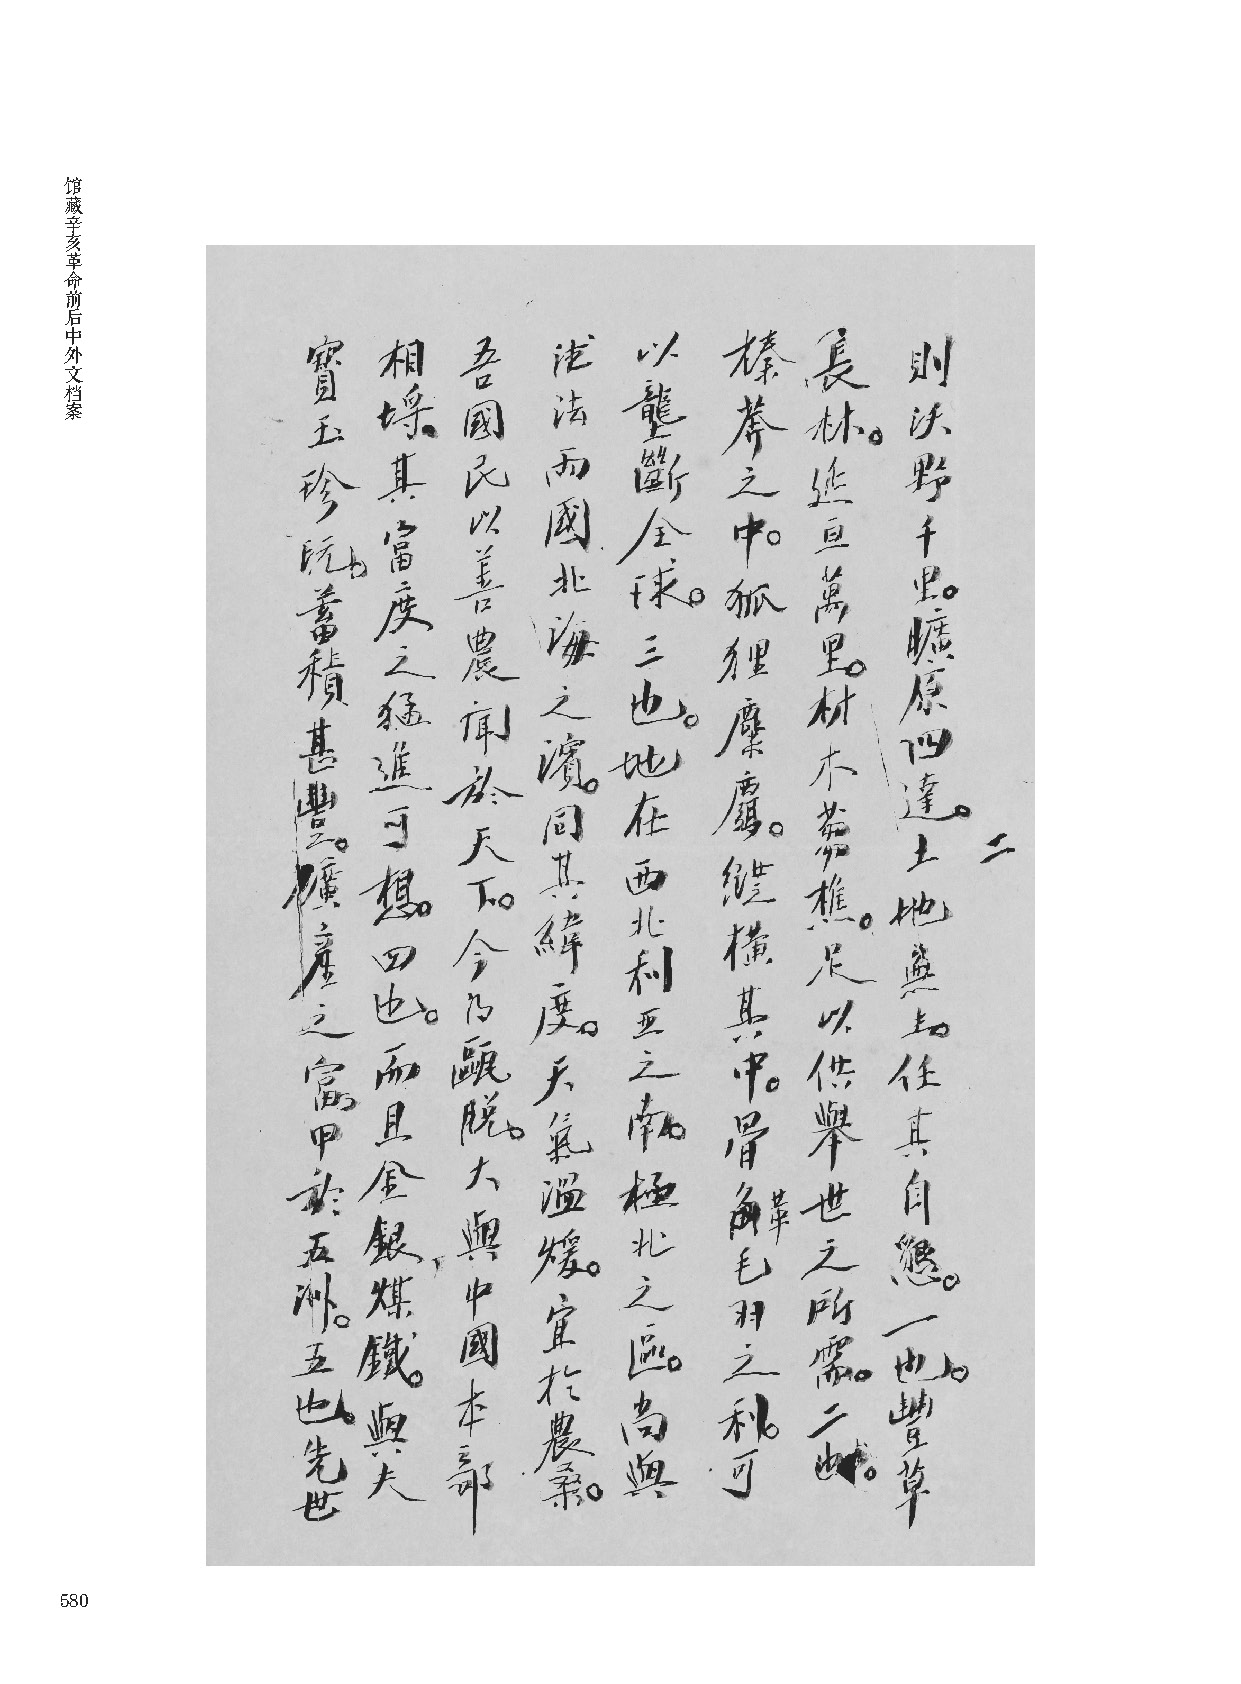 馆藏辛亥革命前后中外文档案
二
則沃野千里。曠原四達。土地無主。任其自懇。一也。豐草
長林。延亘萬里。材木蒭樵。足以供舉世之所需。二也。
榛莽之中。狐狸麋麕。縱橫其中。骨角革毛羽之利。可
以壟斷全球。三也。地在西北利亚之南。極北之區。尚與
法兩國北海之濱。同其緯度。天氣溫煖。宜於農桑。
吾國民以善農聞於天下。今乃甌脱。大與中國本部
相埒。其富度之猛進可想。四也。而且金銀煤鐵。與夫
寶玉珍玩。蓄積甚豐。礦產之富甲於五洲。五也。先世
580